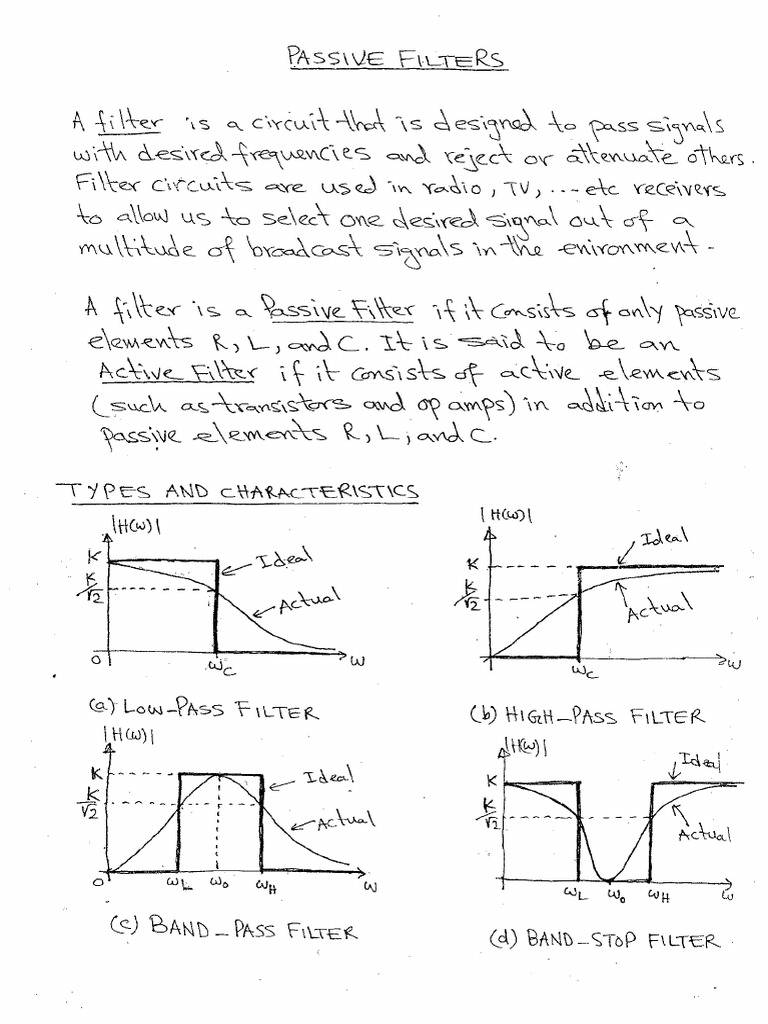 PASSIVE FILTERS
A filter is a circuit that is designed to pass signals
with desired frequencies and reject or attenuate others.
Filter circuits are used in radio, TV, ... etc receivers
to allow us to select one desired signal out of a
multitude of broadcast signals in the enironment.
A filter is a Passive Filter if it consists of only passive
elements R, L, and C. It is said to be an
Active Filter if it consists of active elements
(such as transistors and op amps) in addition to
passive elements R, L, and C.
TYPES AND CHARACTERISTICS
|H(ω)|
K
K/√2
0
Ideal
Actual
ωc
ω
(a) LOW-PASS FILTER
|H(ω)|
K
K/√2
Ideal
Actual
ωc
ω
(b) HIGH-PASS FILTER
|H(ω)|
K
K/√2
0
Ideal
Actual
ωL ω0 ωH ω
(c) BAND-PASS FILTER
|H(ω)|
K
K/√2
Ideal
Actual
ωL ω0 ωH ω
(d) BAND-STOP FILTER